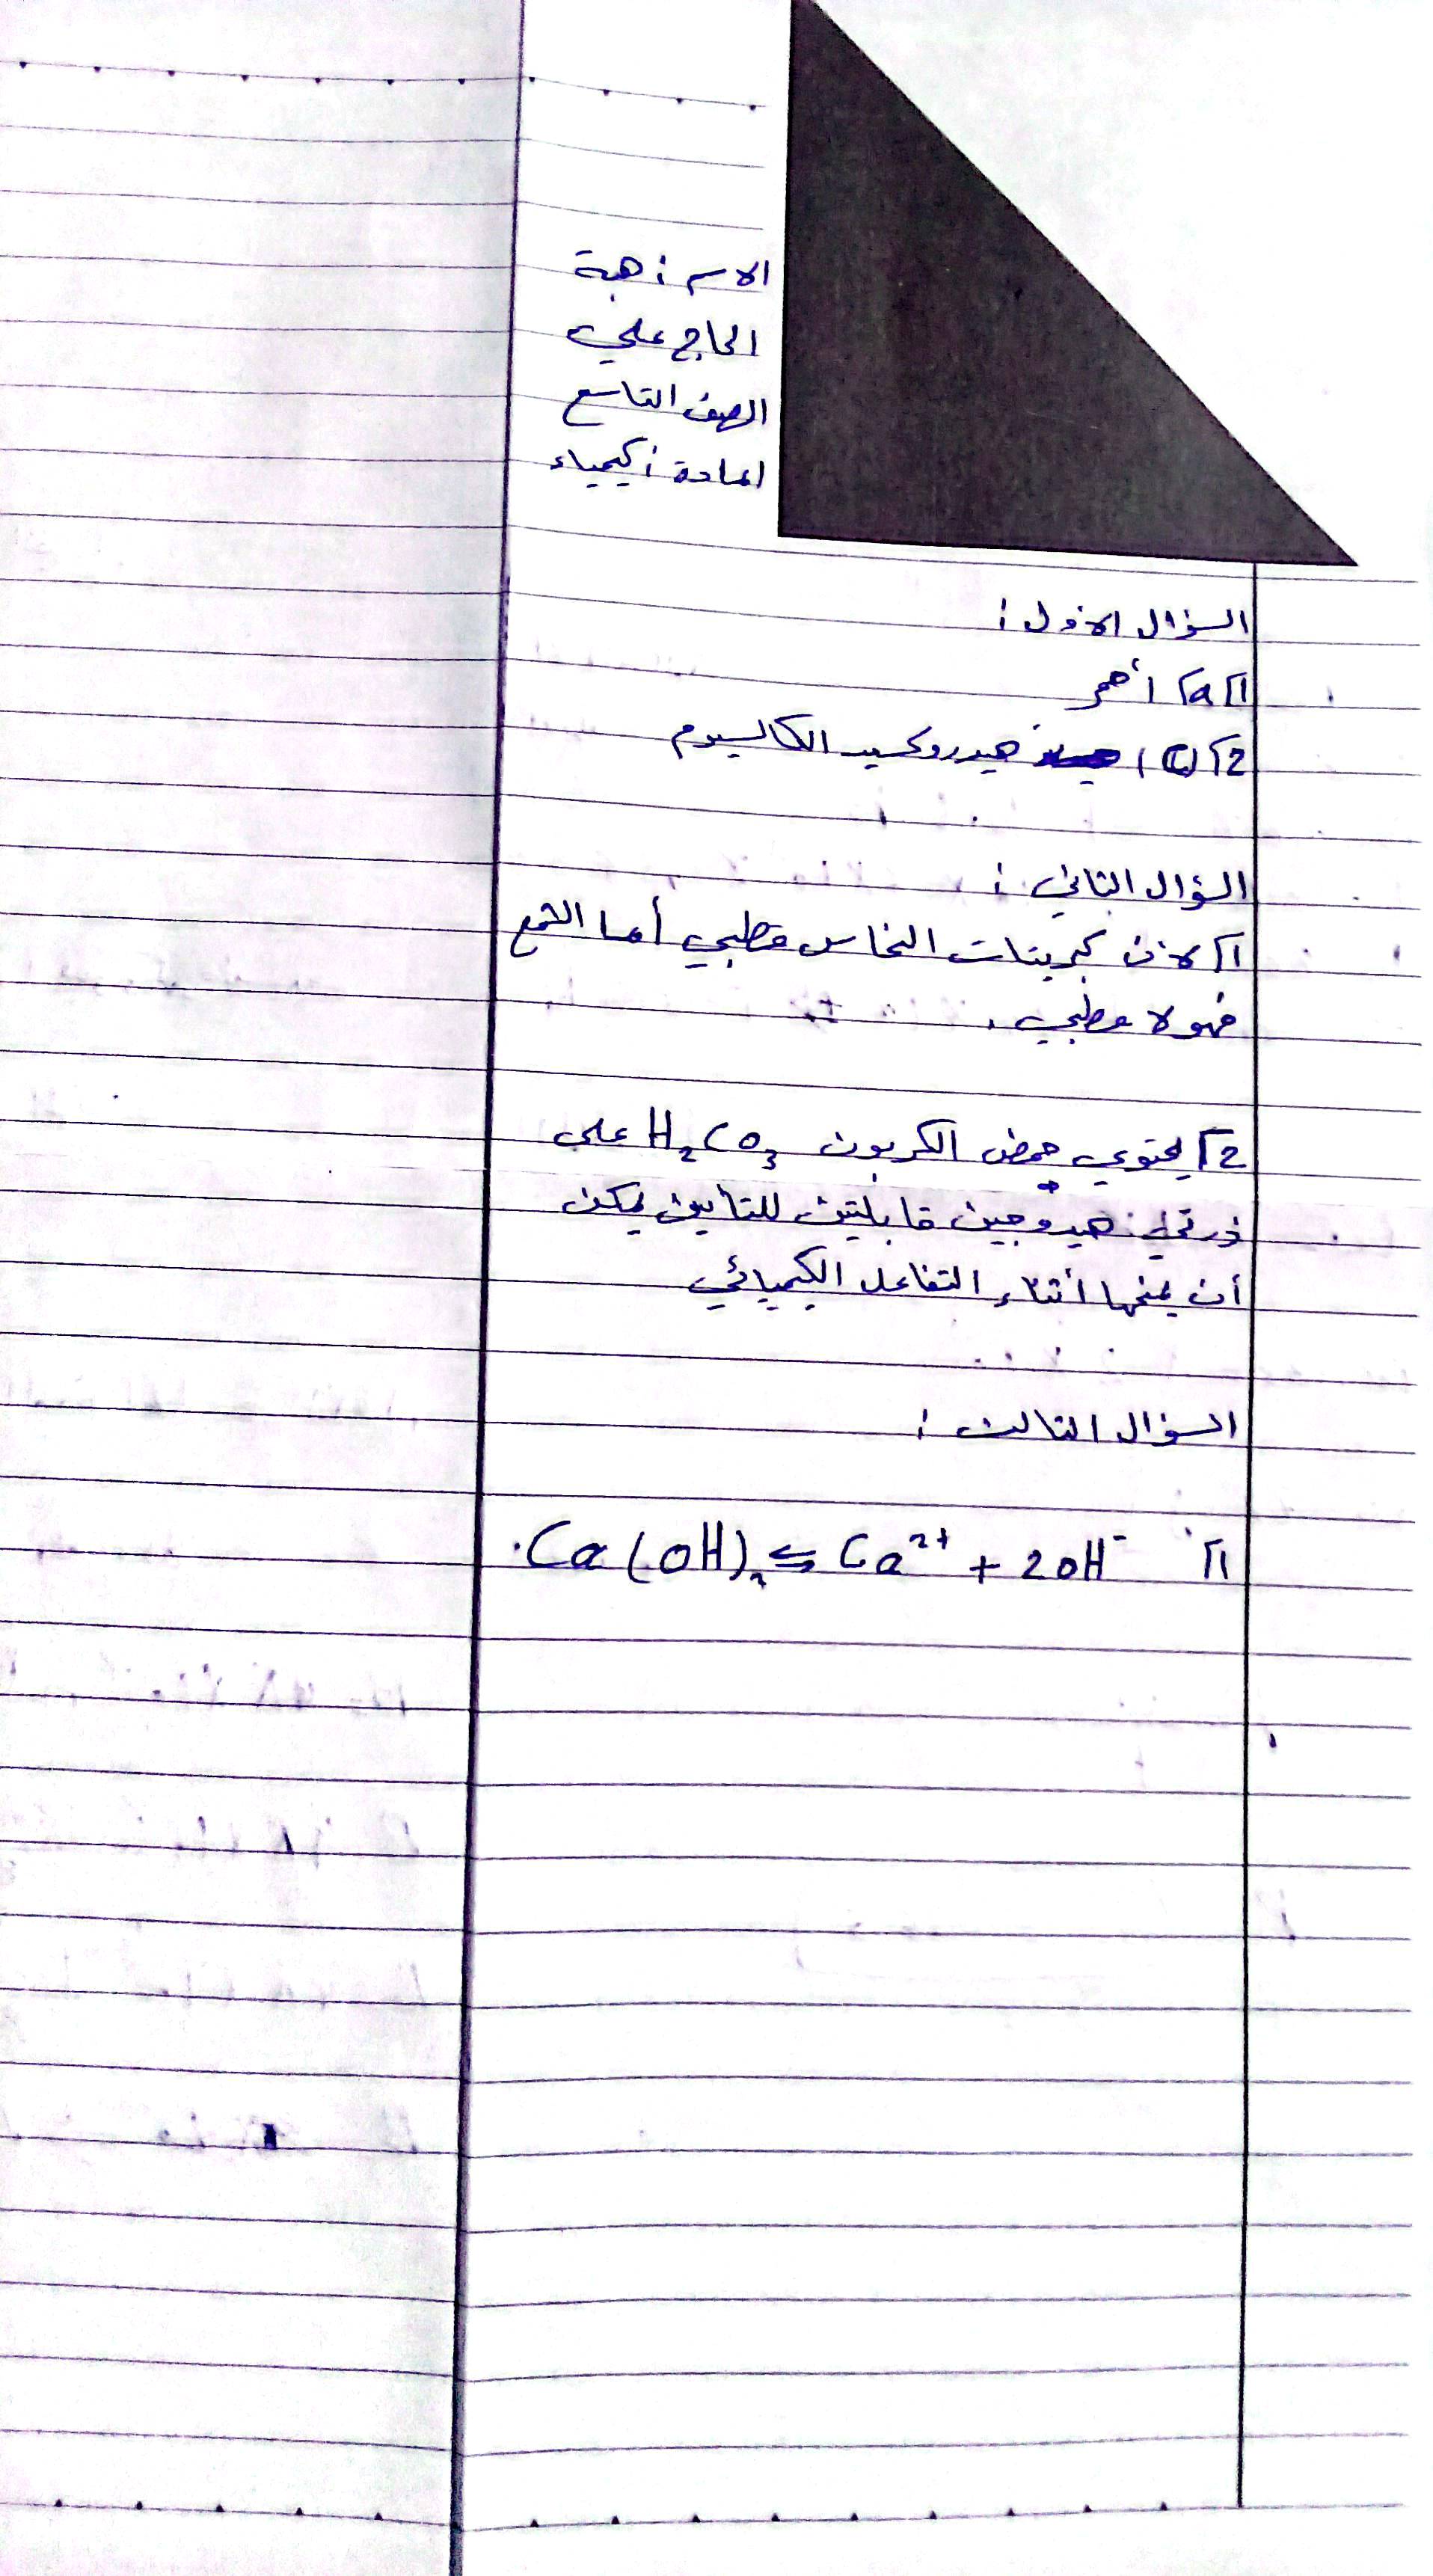 الاسم : هبة
الحاج علي
الصف التاسع
المادة : كيمياء
السؤال الاول :
1] a) أحمر
2] C) هيدروكسيد الكالسيوم
السؤال الثاني :
1] لان كبريتات النحاس قطبي أما الشمع
فهو لا قطبي .
2] يحتوي حمض الكربون H₂CO₃ على
ذرتي هيدروجين قابلتين للتأين يمكن
أن يمنحها أثناء التفاعل الكيميائي
السؤال الثالث :
1] Ca(OH)₂ ⇆ Ca²⁺ + 2OH⁻